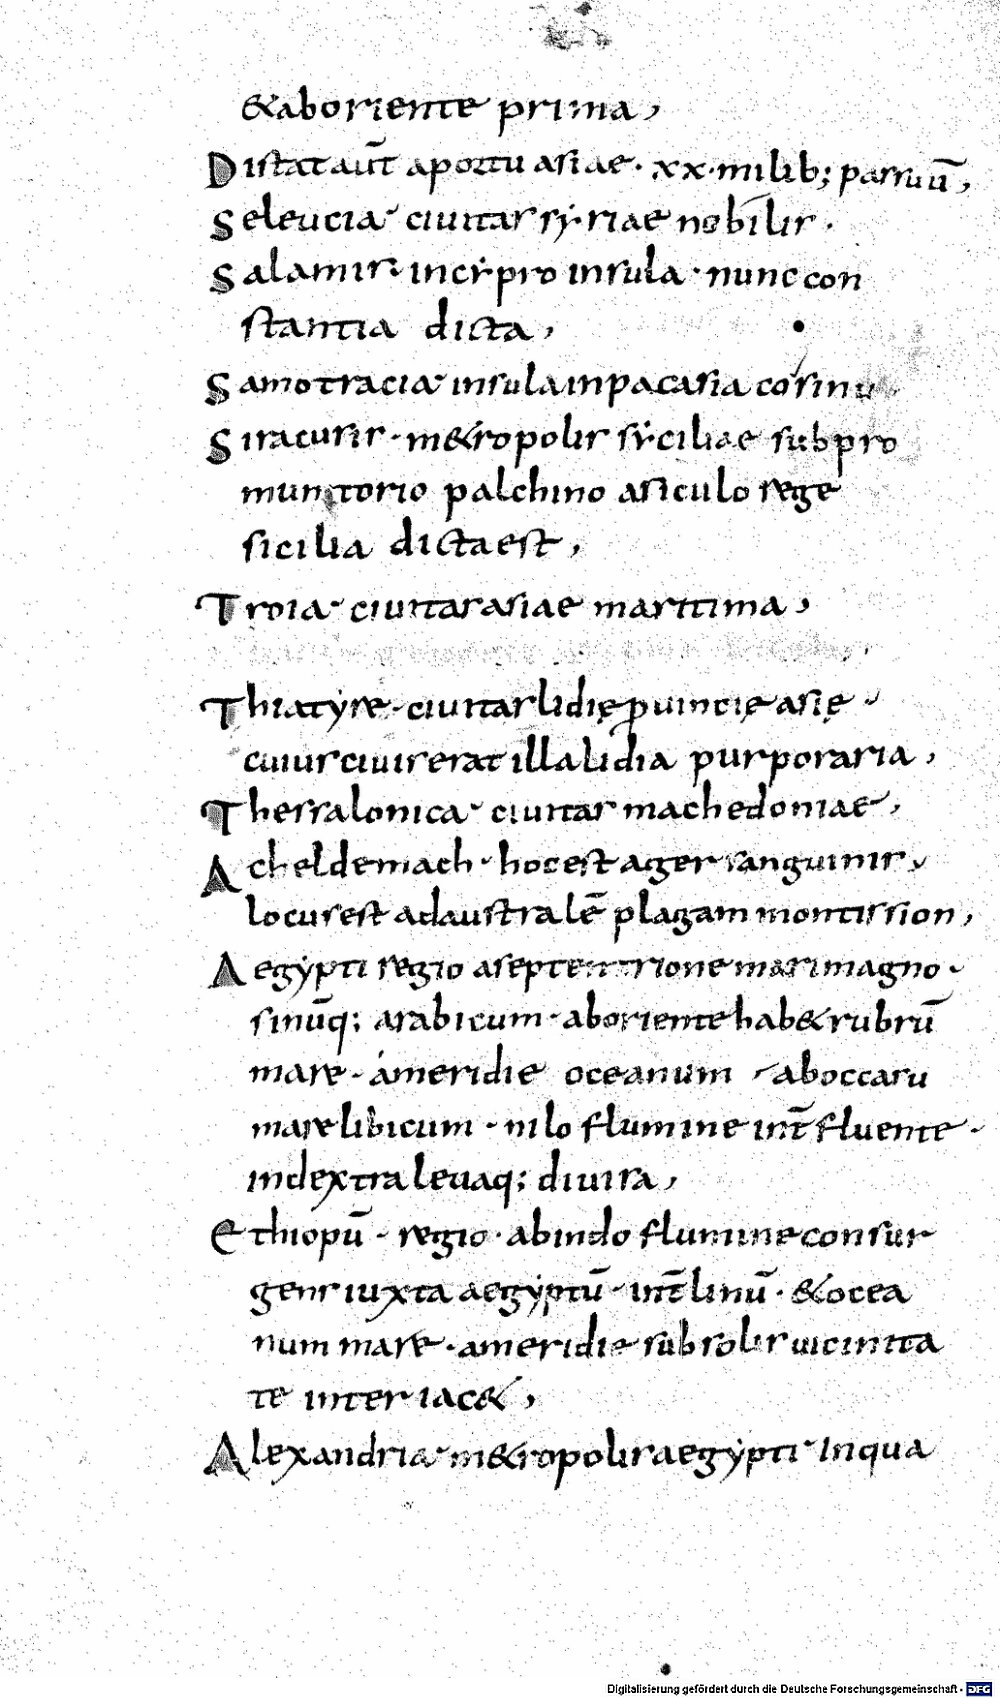 &aboriente prima,
Distat aut̄ aportu asiae · xx · milib; passuū,
Seleucia · ciuitas syriae nobilis ·
Salamis · incypro insula · nunc con
stantia dicta,
Samotracia · insula inpacasia cosinu
Siracusis · m&ropolis syciliae subpro
muntorio palchino asiculo rege
sicilia dicta est,
Troia · ciuitas asiae maritima,
Thiatyre · ciuitas lidię ꝓuincię asię
cuius ciuis erat illa lidia purporaria,
Thessalonica · ciuitas machedoniae,
Acheldemach · hoc est ager sanguinis,
locus est adaustralē plagam montis sion,
Aegypti regio aseptentrione mari magno ·
sinūq; arabicum · aboriente hab& rubrū
mare · ameridie oceanum · aboccasu
mare libicum · nilo flumine int̄fluente ·
indextra leuaq; diuisa,
Ethiopū · regio · abindo flumine consur
gens iuxta aegyptū · int̄ linū · &ocea
num mare · ameridie sub solis uicinita
te inter iac&,
Alexandria · m&ropolis aegypti · Inqua
Digitalisierung gefördert durch die Deutsche Forschungsgemeinschaft - DFG